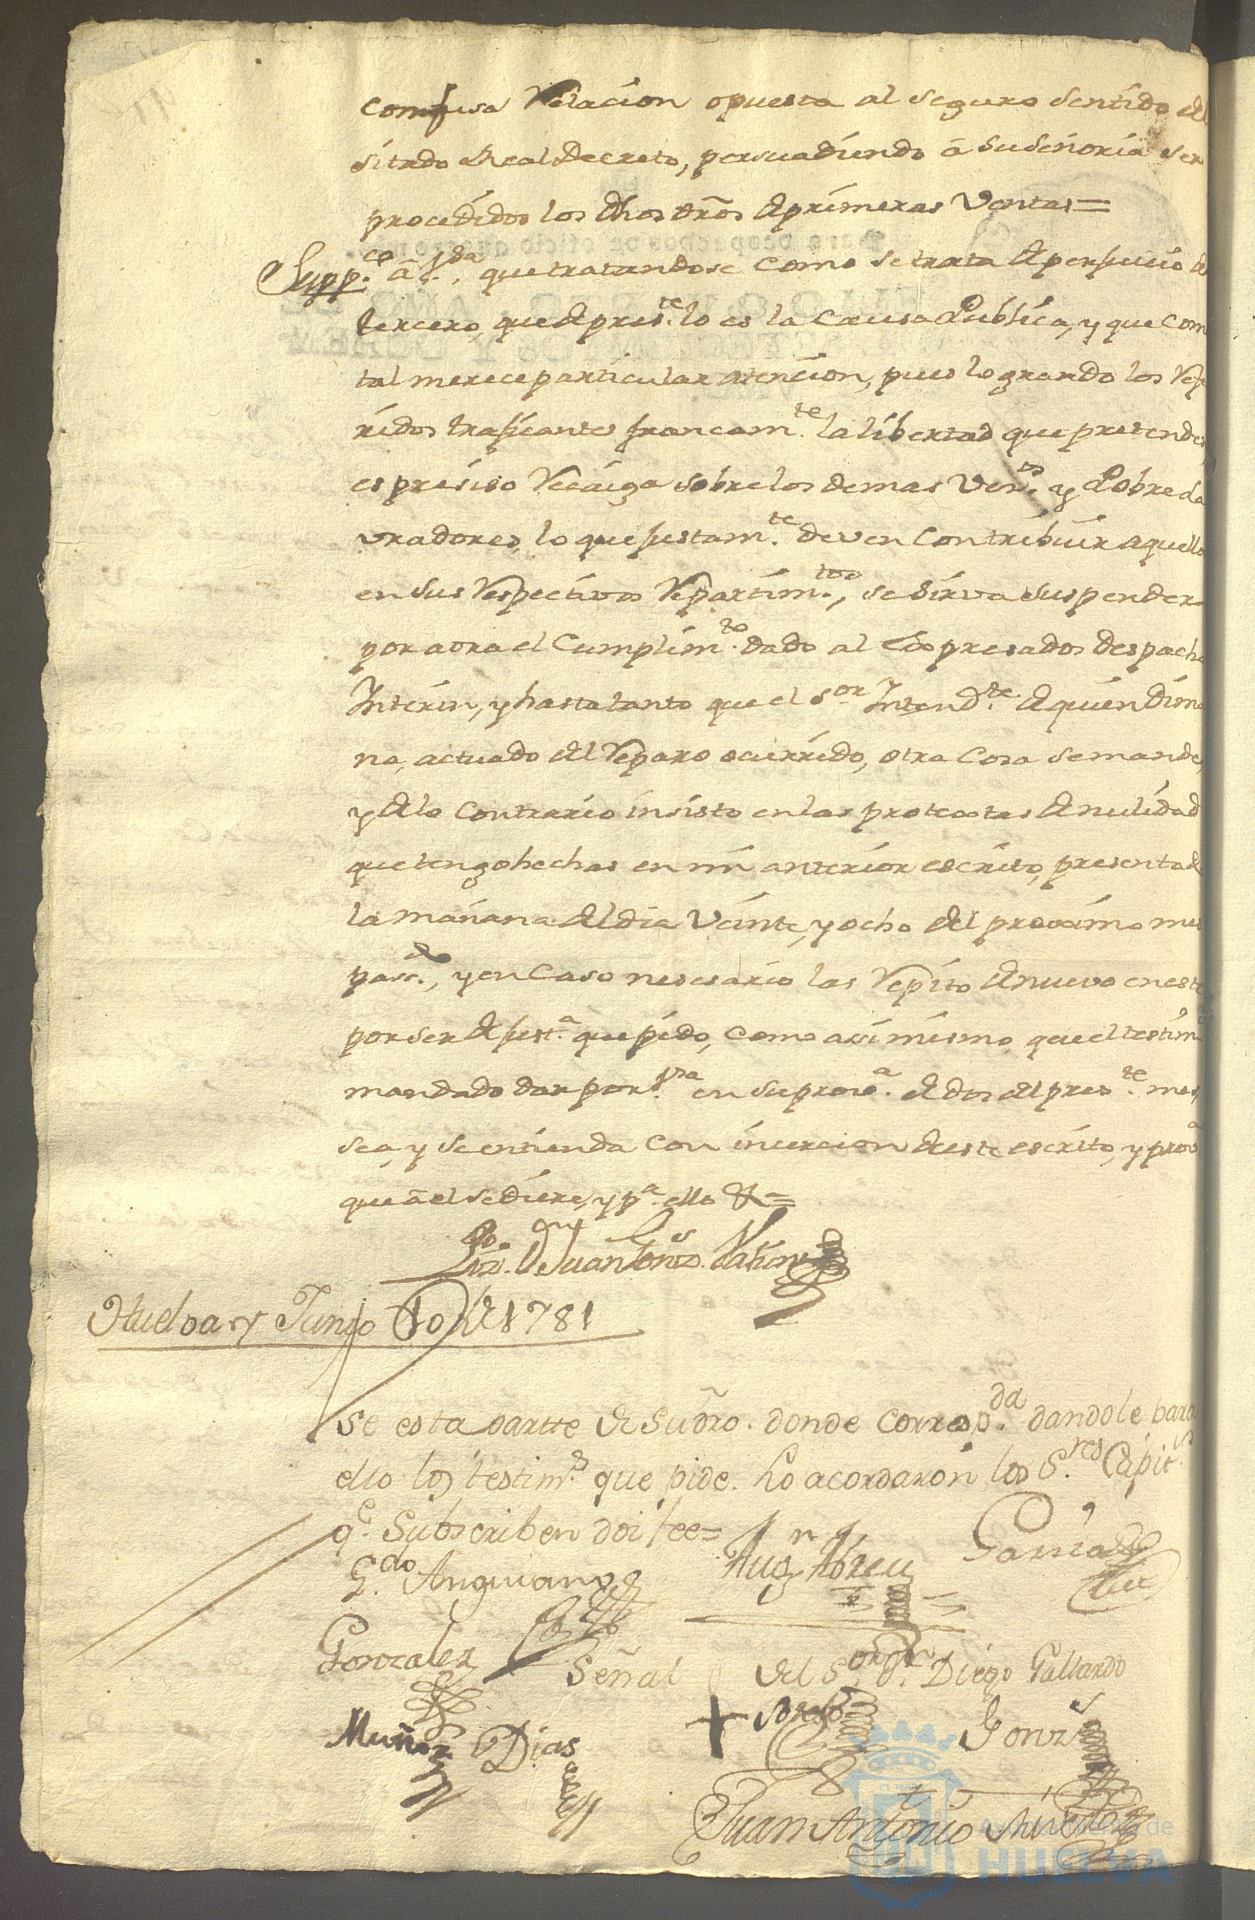 confusa Relacion opuesta al seguro sentido del
sitado Real Decreto, persuadiendo â Suseñoria ser
procedidos los dhos dros de primeras Ventas =
Supp.co â V.sa, que tratandose como se trata de perjuicio de
tercero, que de pres.te lo es la Causa Publica, y que com
tal merece particular atencion, pues logrando los Refe
ridos traficantes francam.te la libertad que pretende,
es presiso Recaiga sobre los demas Vez.os y Pobre La
vradores, lo que justam.te deven Contribuir aquello
en sus Respectivos Repartim.tos, se sirva suspender
por aora el Cumplim.to dado al Expresados despacho
Interin, y hasta tanto que el S.or Intend.te de quien dima
na, actuado del Reparo ocurrido, otra Cosa se mande,
y de lo Contrario insisto en las protestas de nulidad
que tengo hechas en mi anterior escrito, presentad
la mañana del dia Veinte, y ocho del proximo mes
pas.do, y en Caso nesesario las Repito de nuevo en este
por ser de just.a que pido, como asimismo, que el testim
mandado dar por V.sa en su prov.a de dos del pres.te mes,
sea, y se entienda con incercion de este escrito, y prov.a
que â el se diere, y p.a ello &=
Liz.do Dn Juan Gonz.s
Huelva y Junio 10 de 1781
se esta partte de su dro. donde corresp.da dandole para
ello los testim.s que pide. Lo acordaron los S.res Capit.s
q.e Subscriben doi fee=
G.do Anguiano
Aug.n Abreu
Garcia
Gonzalez
Señal del S.or D.n Diego Gallardo
Muñoz
Dias
+
Gonz.s
Juan Antonio
Ayuntamiento de
HUELVA